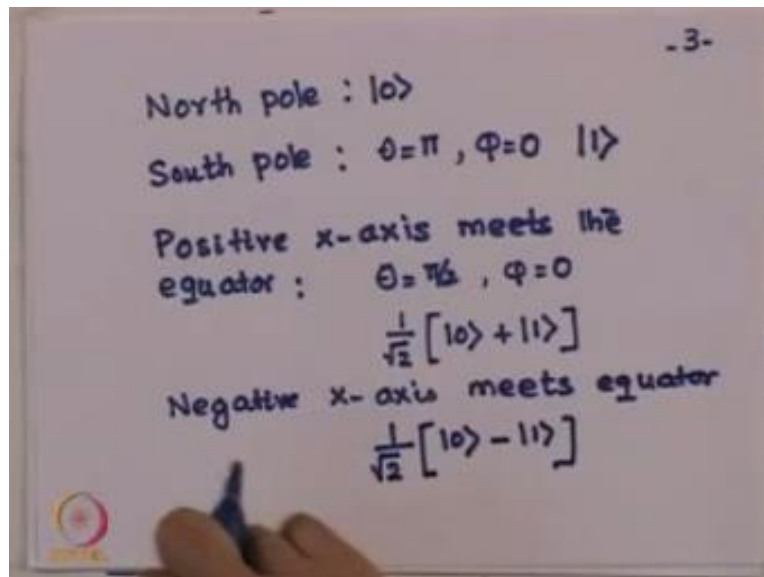 -3-
North pole : |0>
South pole : θ=π , φ=0 |1>
Positive x-axis meets the
equator : θ=π/2 , φ=0
1/√2 [|0> + |1>]
Negative x-axis meets equator
1/√2 [|0> - |1>]